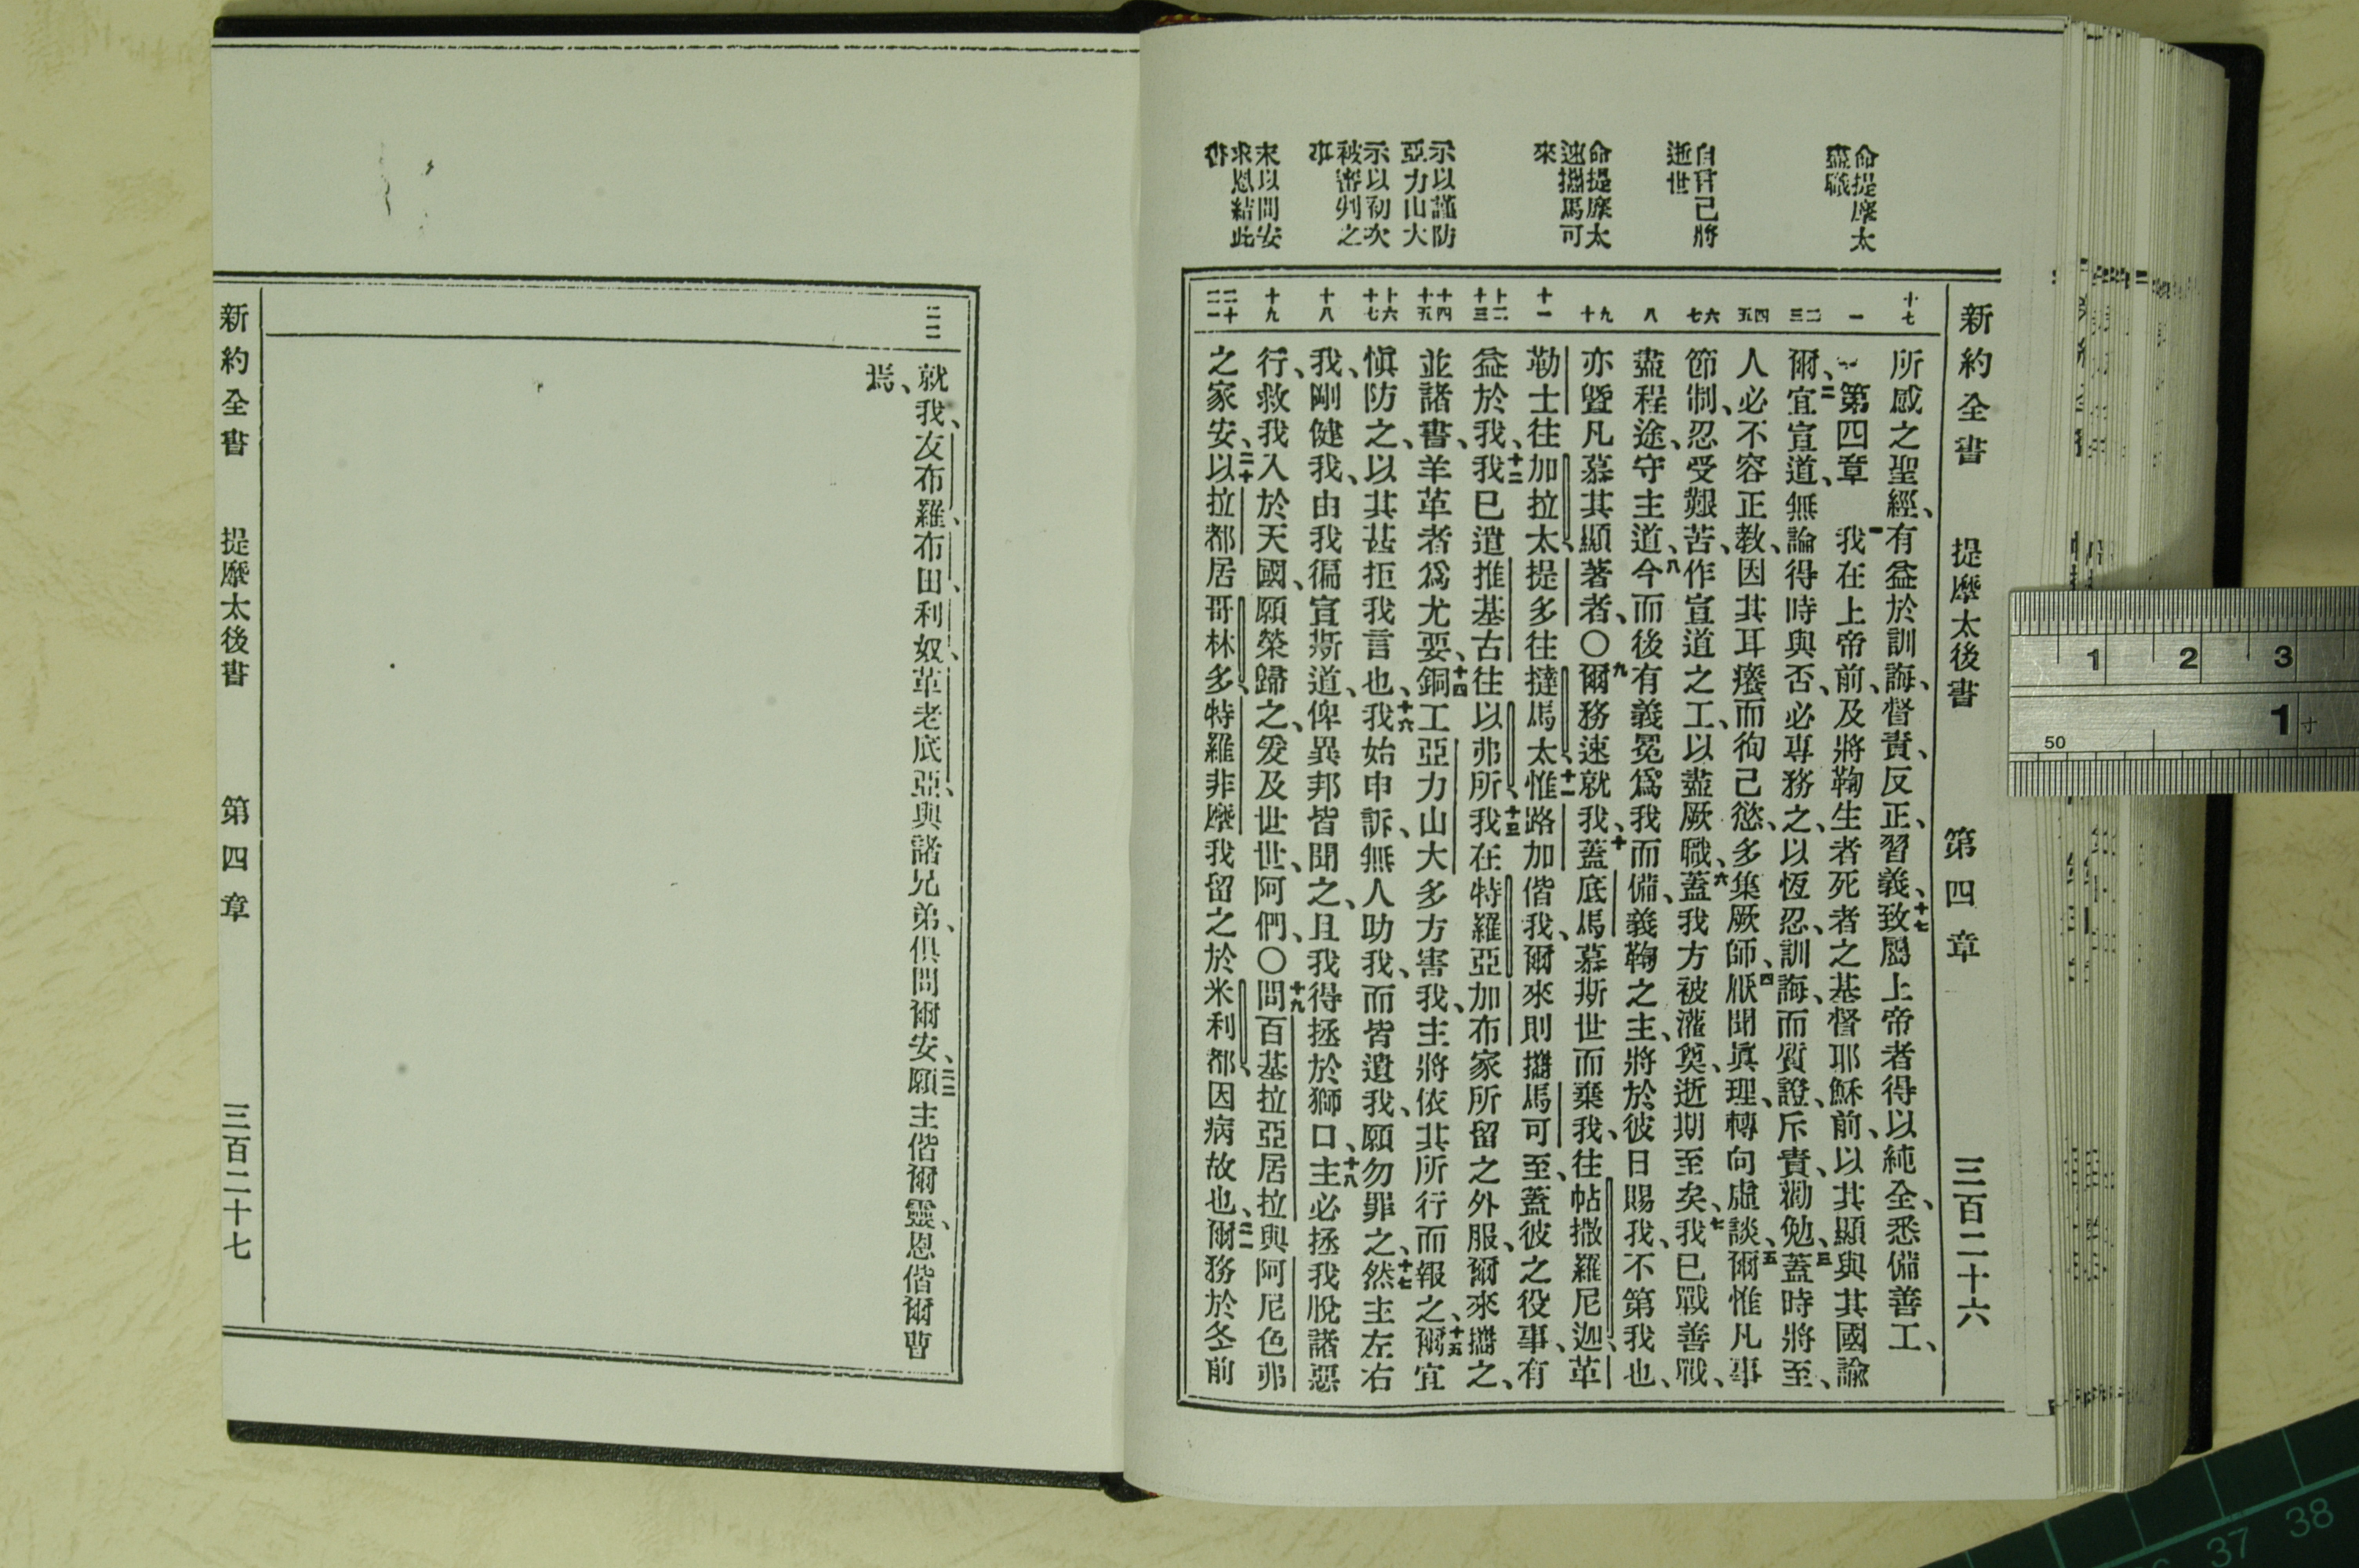 新約全書 提摩太後書 第四章 三百二十六
命提摩太
盡職
自言己將
逝世
命提摩太
速攜馬可
來
示以謹防
亞力山大
示以初次
被審判之
事
末以問安
求恩結此
書
十七
一
二
三
四
五
六
七
八
九
十
十一
十二
十三
十四
十五
十六
十七
十八
十九
二十
二一
所感之聖經、有益於訓誨、督責、反正、習義、十七致屬上帝者得以純全、悉備善工、
第四章 一我在上帝前、及將鞫生者死者之基督耶穌前、以其顯與其國諭
爾、二宜宣道、無論得時與否、必專務之、以恆忍、訓誨、而質證、斥責、勸勉、三蓋時將至、
人必不容正敎、因其耳癢而徇己慾、多集厥師、四厭聞眞理、轉向虛談、五爾惟凡事
節制、忍受艱苦、作宣道之工、以盡厥職、六蓋我方被灌奠、逝期至矣、七我已戰善戰、
盡程途、守主道、八今而後有義冕爲我而備、義鞫之主、將於彼日賜我、不第我也、
亦曁凡慕其顯著者、〇九爾務速就我、十蓋底馬慕斯世而棄我、往帖撒羅尼迦、革
勒士往加拉太、提多往撻馬太、十一惟路加偕我、爾來則攜馬可至、蓋彼之役事、有
益於我、十二我已遣推基古往以弗所、十三我在特羅亞加布家所留之外服、爾來攜之、
並諸書、羊革者爲尤要、十四銅工亞力山大多方害我、主將依其所行而報之、十五爾宜
愼防之、以其甚拒我言也、十六我始申訴、無人助我、而皆遺我、願勿罪之、十七然主左右
我、剛健我、由我徧宣斯道、俾異邦皆聞之、且我得拯於獅口、十八主必拯我脫諸惡
行、救我入於天國、願榮歸之、爰及世世、阿們、〇十九問百基拉亞居拉與阿尼色弗
之家安、二十以拉都居哥林多、特羅非摩我留之於米利都、因病故也、二一爾務於冬前
二二
就我、友布羅、布田、利奴、革老底亞、與諸兄弟、俱問爾安、二二願主偕爾靈、恩偕爾曹
焉、
新約全書 提摩太後書 第四章 三百二十七
1 2 3
50 1寸
37 38